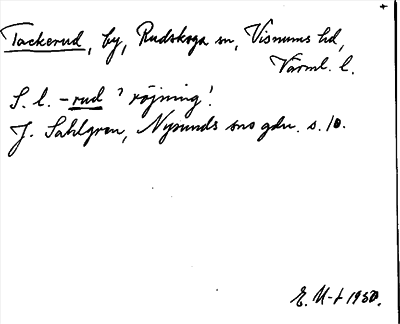 +
Tackerud, by, Rudskoga sn, Visnums hd,
Värml. l.
S. l. -rud 'röjning'.
J. Sahlgren, Nysunds sns gdn. s. 10.
E. U-t 1950.